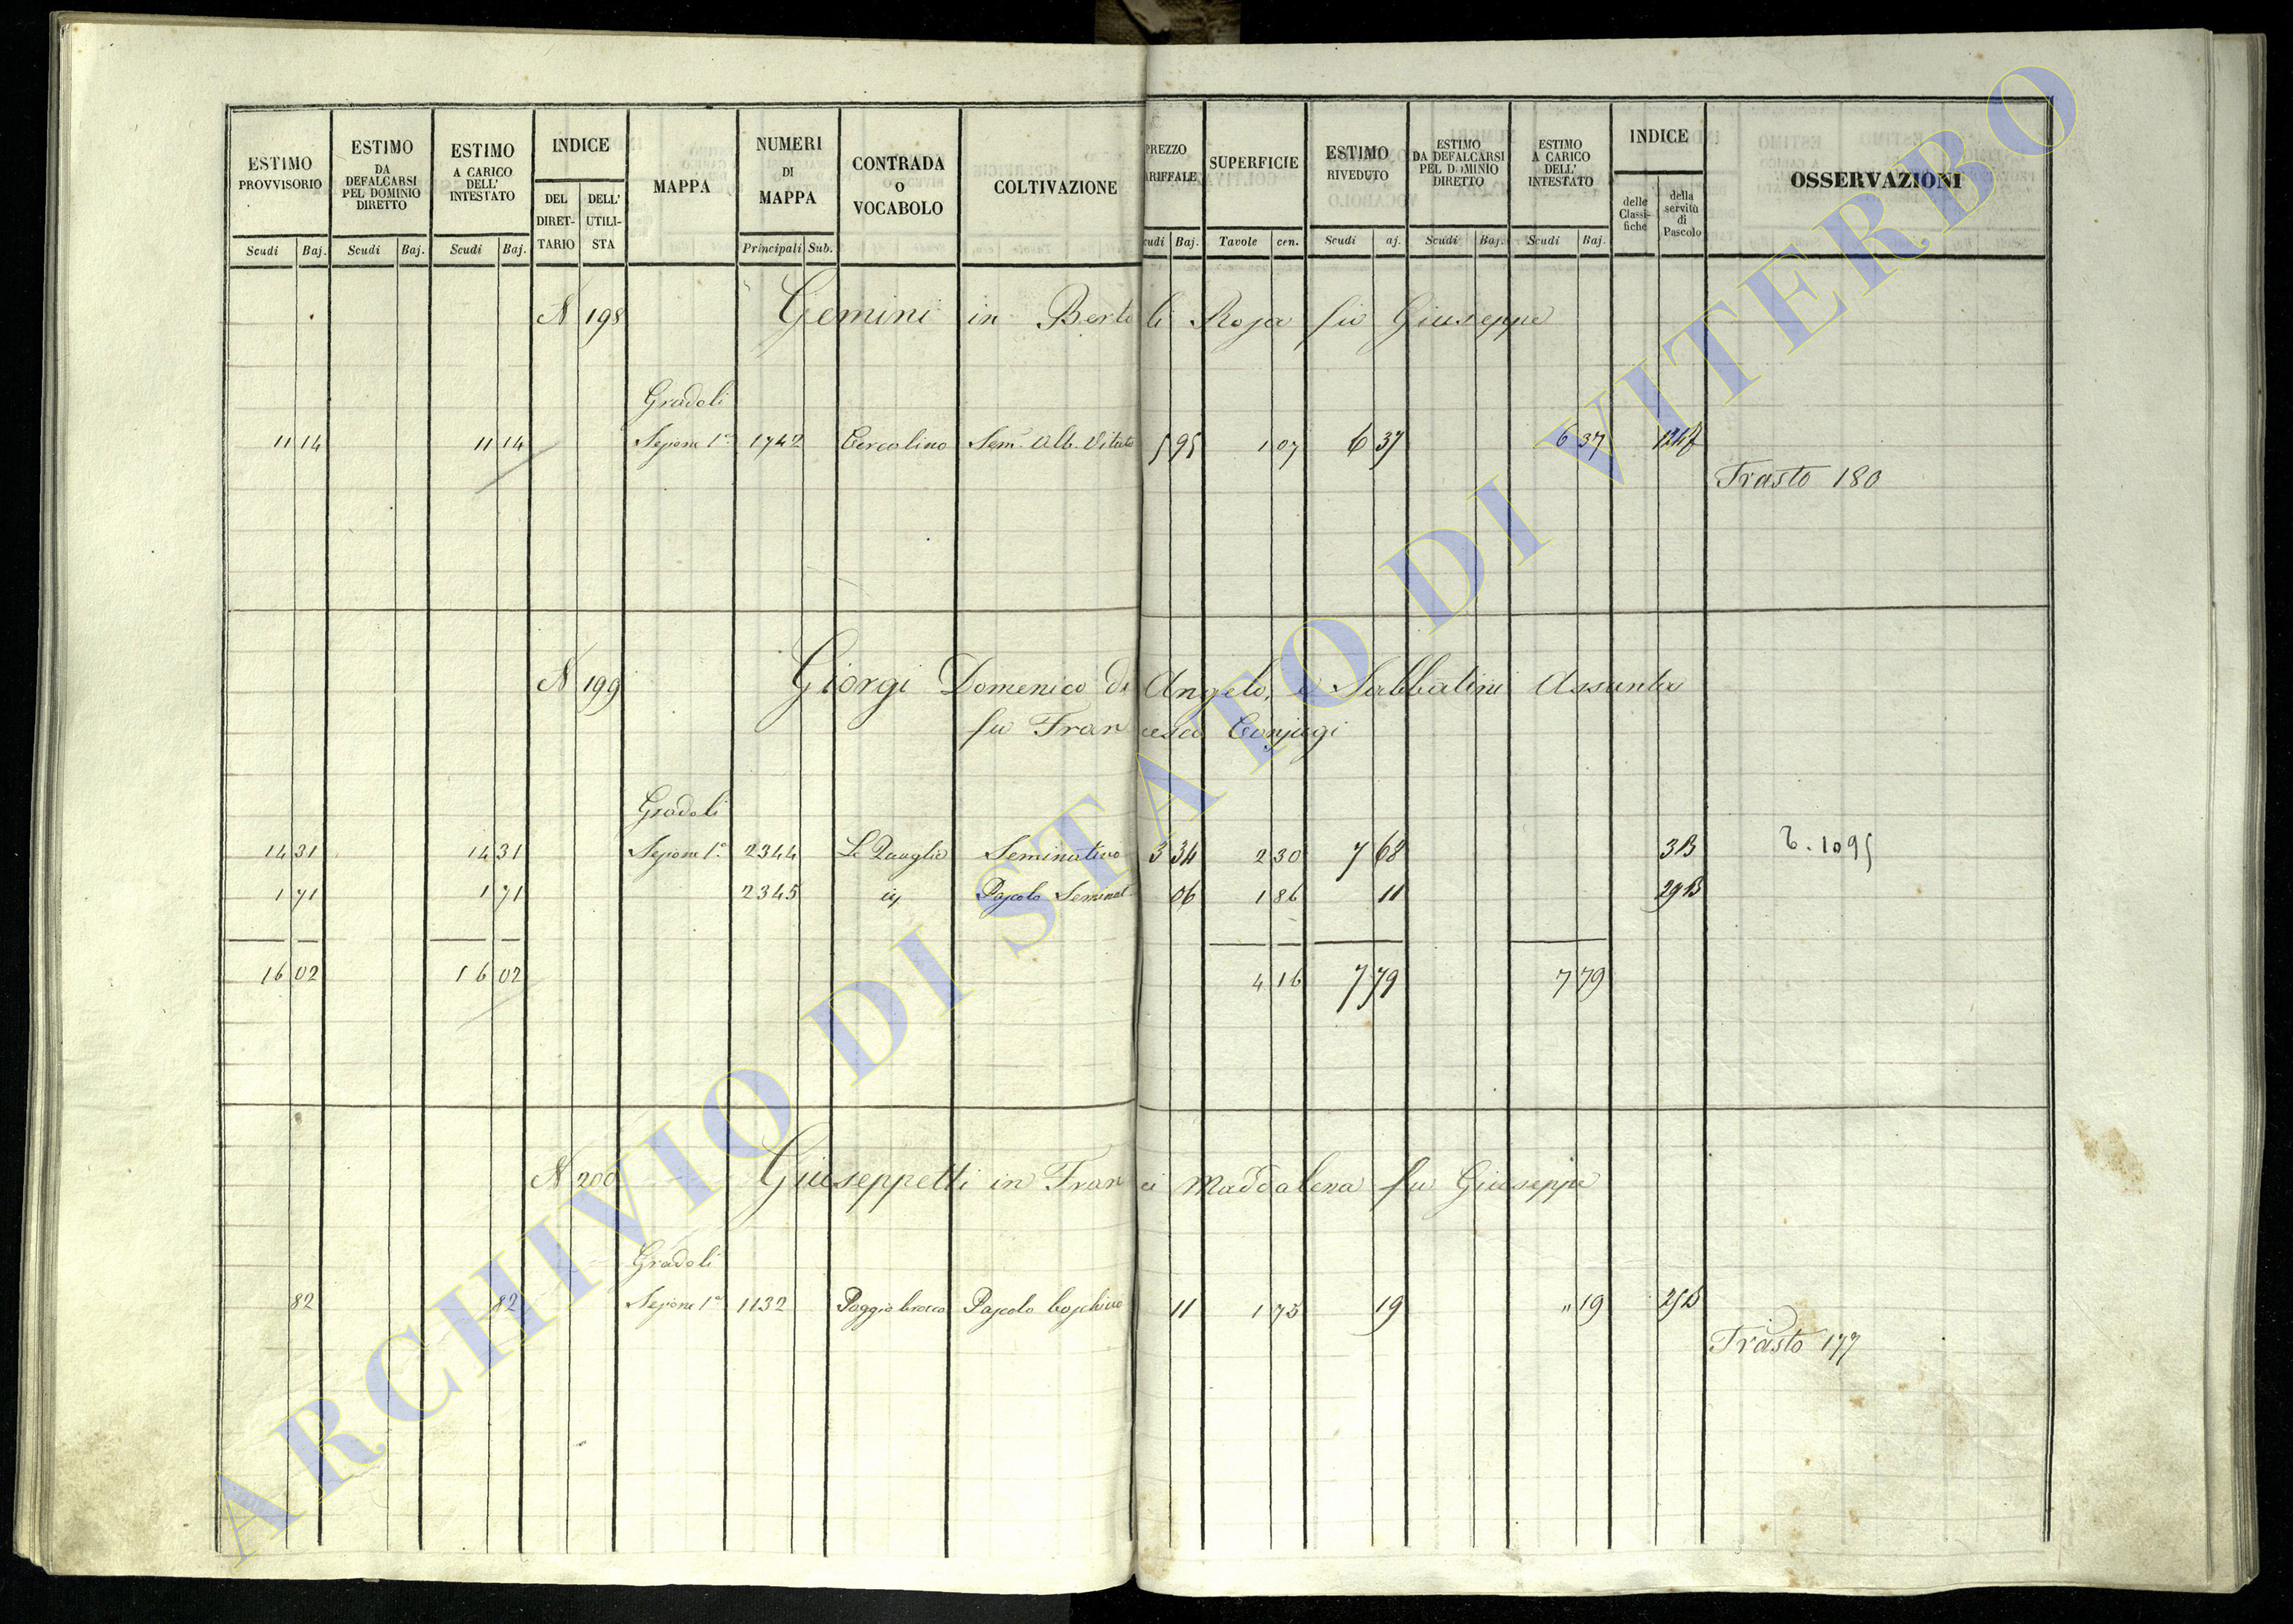 ESTIMO PROVVISORIO Scudi Baj.
ESTIMO DA DEFALCARSI PEL DOMINIO DIRETTO Scudi Baj.
ESTIMO A CARICO DELL' INTESTATO Scudi Baj.
INDICE DEL DIRET-TARIO DELL' UTILI-STA
MAPPA
NUMERI DI MAPPA Principali Sub.
CONTRADA O VOCABOLO
COLTIVAZIONE
PREZZO ARIFFALE cudi Baj.
SUPERFICIE Tavole cen.
ESTIMO RIVEDUTO Scudi aj.
ESTIMO DA DEFALCARSI PEL DOMINIO DIRETTO Scudi Baj.
ESTIMO A CARICO DELL' INTESTATO Scudi Baj.
INDICE delle Classi-fiche della servitù di Pascolo
OSSERVAZIONI
N 198 Gemini in Bertoli Rosa fu Giuseppe
Gradoli
11 14 11 14 Sezione 1a 1742 Cercolino Sem. Alb. Vitato 5 95 1 07 6 37 6 37
Trasto 180
N 199 Giorgi Domenico di Angelo, e Sabbatini Assunta
fu Francesco Conjugi
Gradoli
14 31 14 31 Sezione 1a 2344 Le Quaglie Seminativo 3 34 2 30 7 68 3B T. 1095
1 71 1 71 2345 Pascolo Seminat 06 1 86 11 29B
16 02 16 02 4 16 7 79 7 79
N 200 Giuseppetti in Franci Maddalena fu Giuseppe
Gradoli
82 82 Sezione 1a 1132 Poggio bracco Pascolo boschivo 11 1 75 19 " 19 25B
Trasto 177
ARCHIVIO DI STATO DI VITERBO